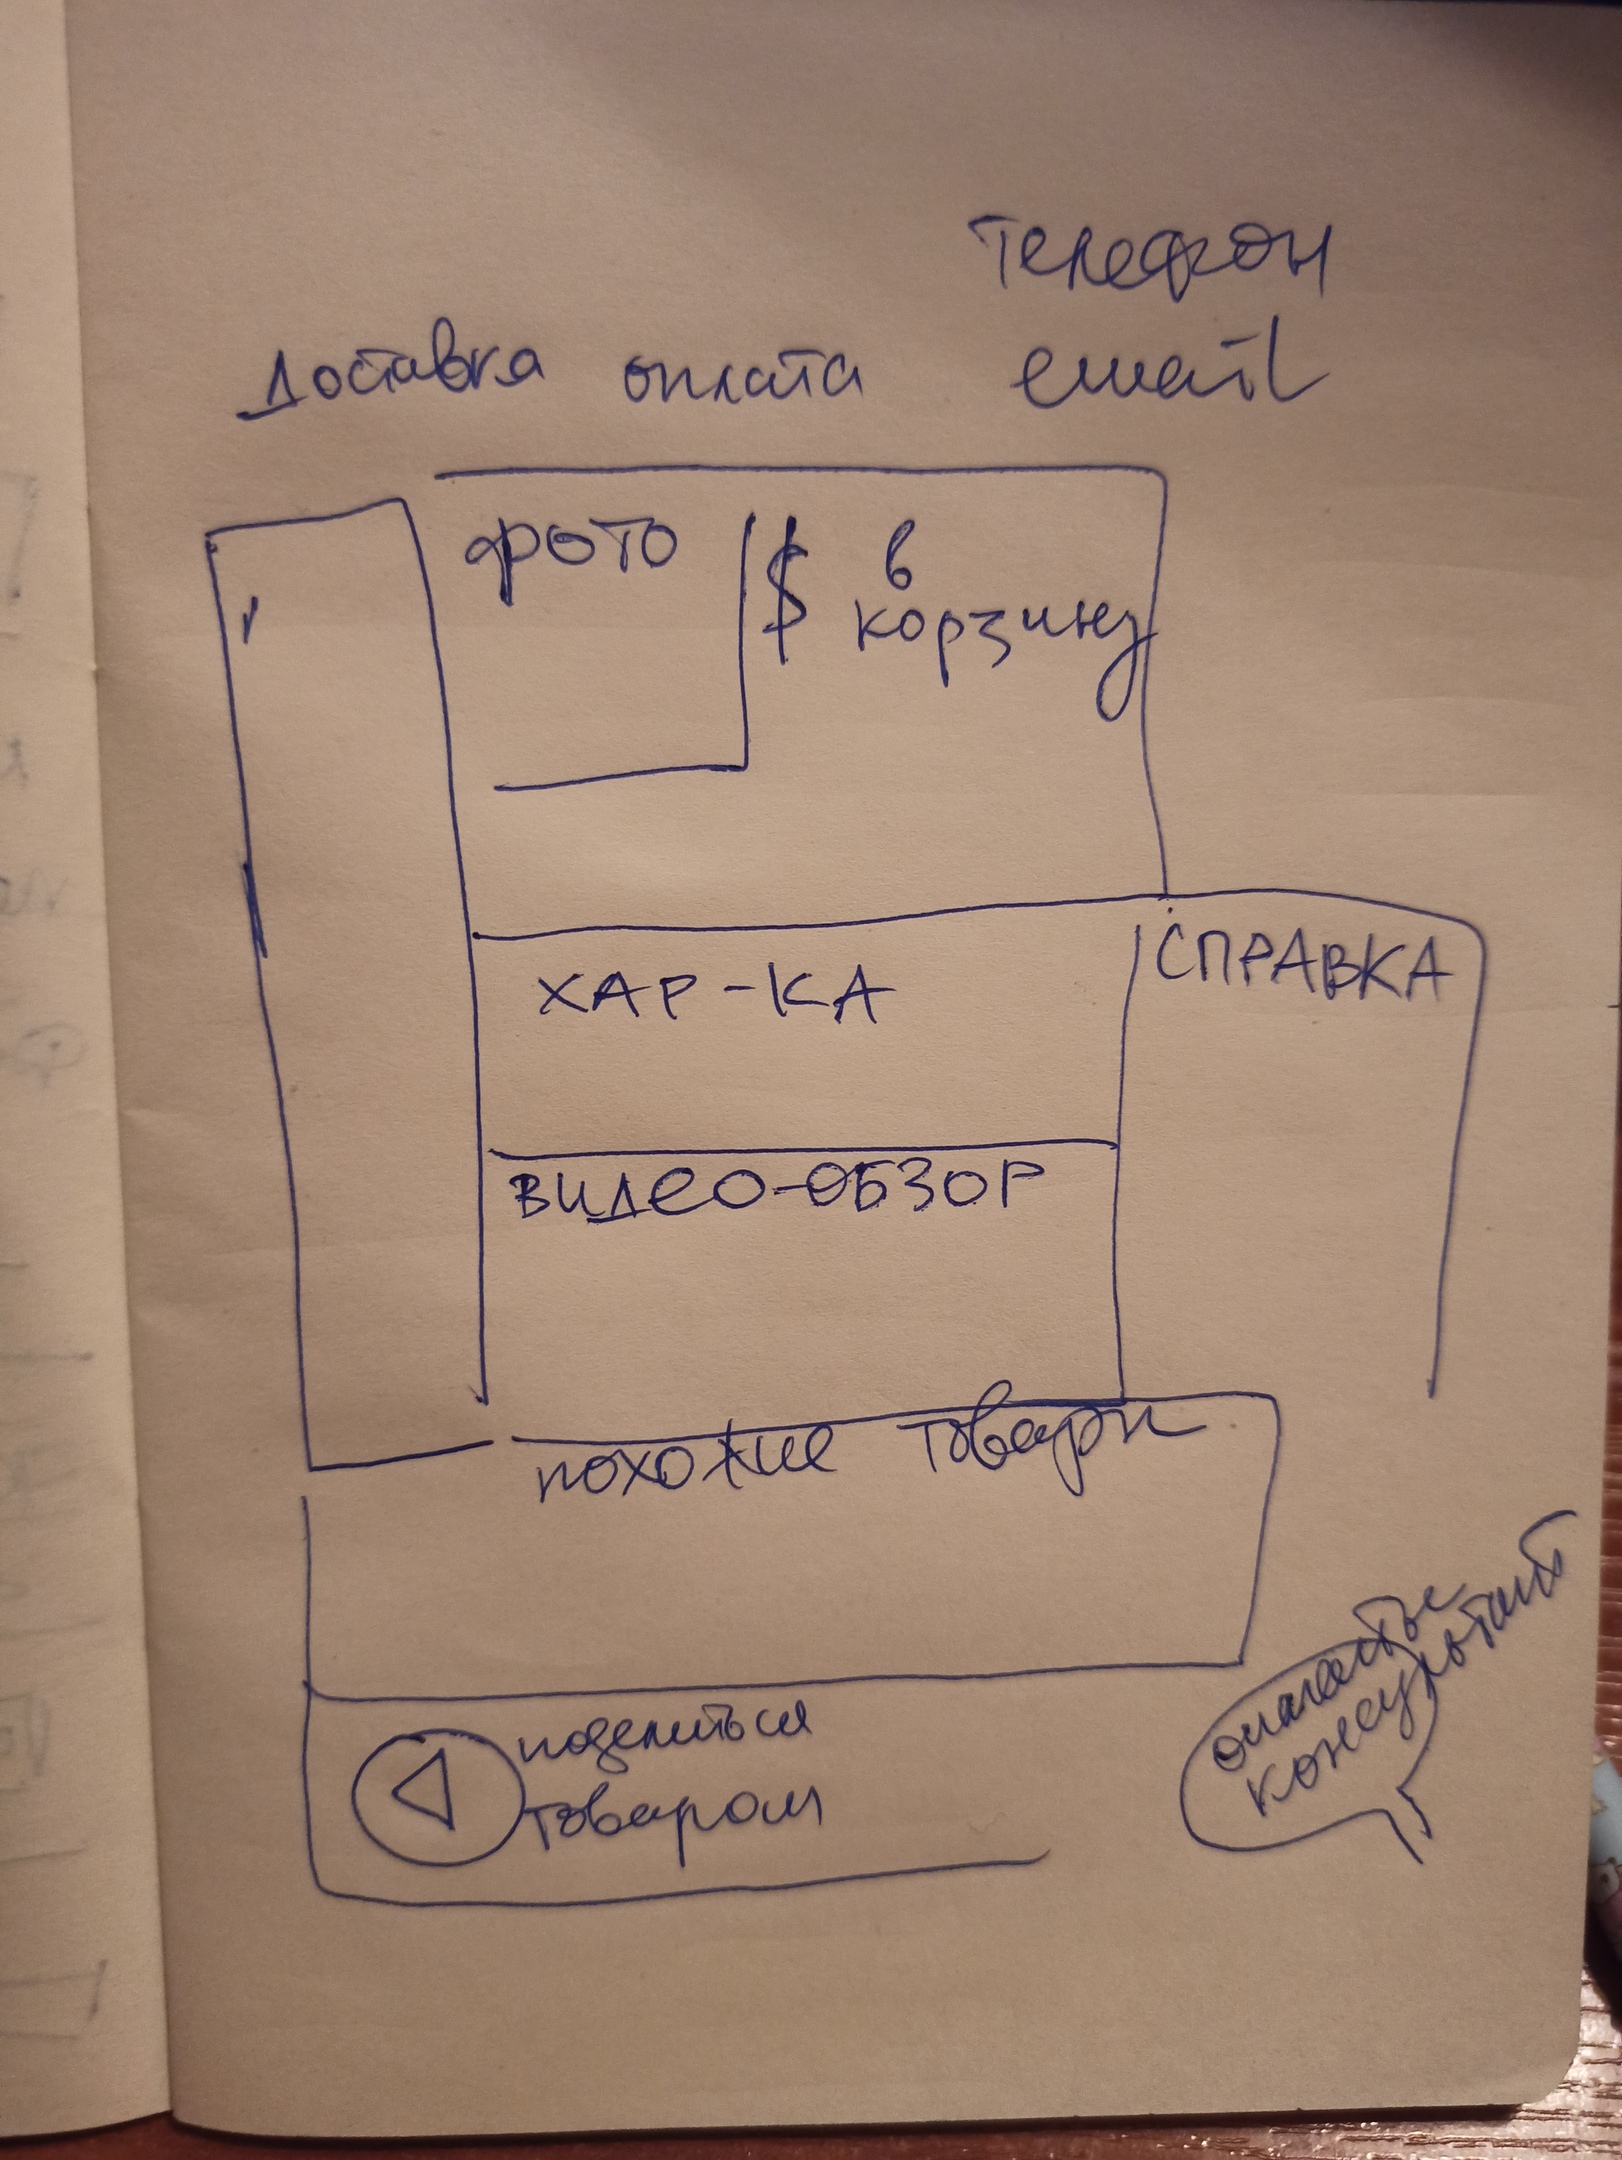 Телефон
Доставка оплата email
фото $ в
корзину
ХАР-КА
СПРАВКА
ВИДЕО-ОБЗОР
похожие товары
поделиться
товаром
консультант